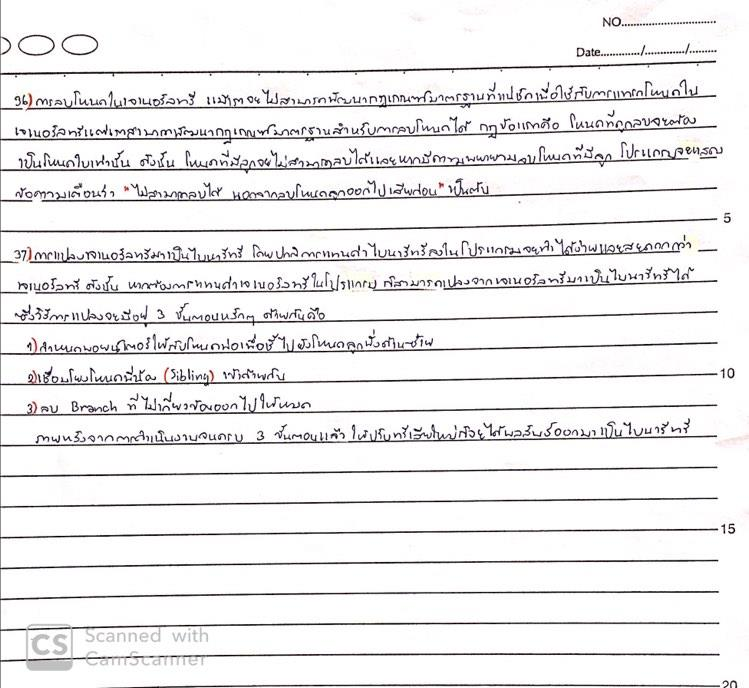 NO..............................
Date............./............./.........
36) การลบโหนดในเจเนอรัลทรี แม้เราจะไม่สามารถพัฒนากฎเกณฑ์มาตรฐานที่แน่ชัดเพื่อใช้กับการแทรกโหนดใน
เจเนอรัลทรีแต่เราสามารถพัฒนากฎเกณฑ์มาตรฐานสำหรับการลบโหนดได้ กฎข้อแรกคือ โหนดที่ถูกลบจะต้อง
เป็นโหนดใบเท่านั้น ดังนั้น โหนดที่มีลูกจะไม่สามารถลบได้และหากมีความพยายามลบโหนดที่มีลูก โปรแกรมจะแสดง
ข้อความเตือนว่า "ไม่สามารถลบได้ นอกจากลบโหนดลูกออกไปเสียก่อน" เป็นต้น
5
37) การแปลงเจเนอรัลทรีมาเป็นไบนารีทรี โดยปกติการแทนค่าไบนารีทรีลงในโปรแกรมจะทำได้ง่ายและสะดวกกว่า
เจเนอรัลทรี ดังนั้น หากต้องการแทนค่าเจเนอรัลทรีในโปรแกรม ก็สามารถแปลงจากเจเนอรัลทรีมาเป็นไบนารีทรีได้
ซึ่งวิธีการแปลงจะมีอยู่ 3 ขั้นตอนหลักๆ ด้วยกันคือ
1) กำหนดพอยน์เตอร์ให้กับโหนดพ่อเพื่อชี้ไปยังโหนดลูกฝั่งด้านซ้าย
2) เชื่อมโยงโหนดพี่น้อง (Sibling) เข้าด้วยกัน
10
3) ลบ Branch ที่ไม่เกี่ยวข้องออกไปให้หมด
ภายหลังจากการดำเนินงานจนครบ 3 ขั้นตอนแล้ว ให้ปรับทรีเสียใหม่ก็จะได้ผลลัพธ์ออกมาเป็นไบนารีทรี
15
CS Scanned with
CamScanner
20